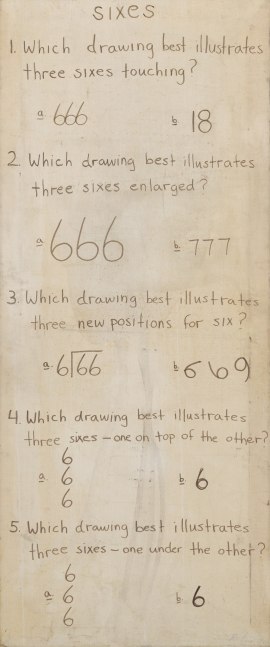 SIXES
1. Which drawing best illustrates
three sixes touching?
a 666
b 18
2. Which drawing best illustrates
three sixes enlarged?
a 666
b 777
3. Which drawing best illustrates
three new positions for six?
a. 6)66
b 6 6 9
4. Which drawing best illustrates
three sixes – one on top of the other?
6
a 6
6
b 6
5. Which drawing best illustrates
three sixes – one under the other?
6
a 6
6
b 6